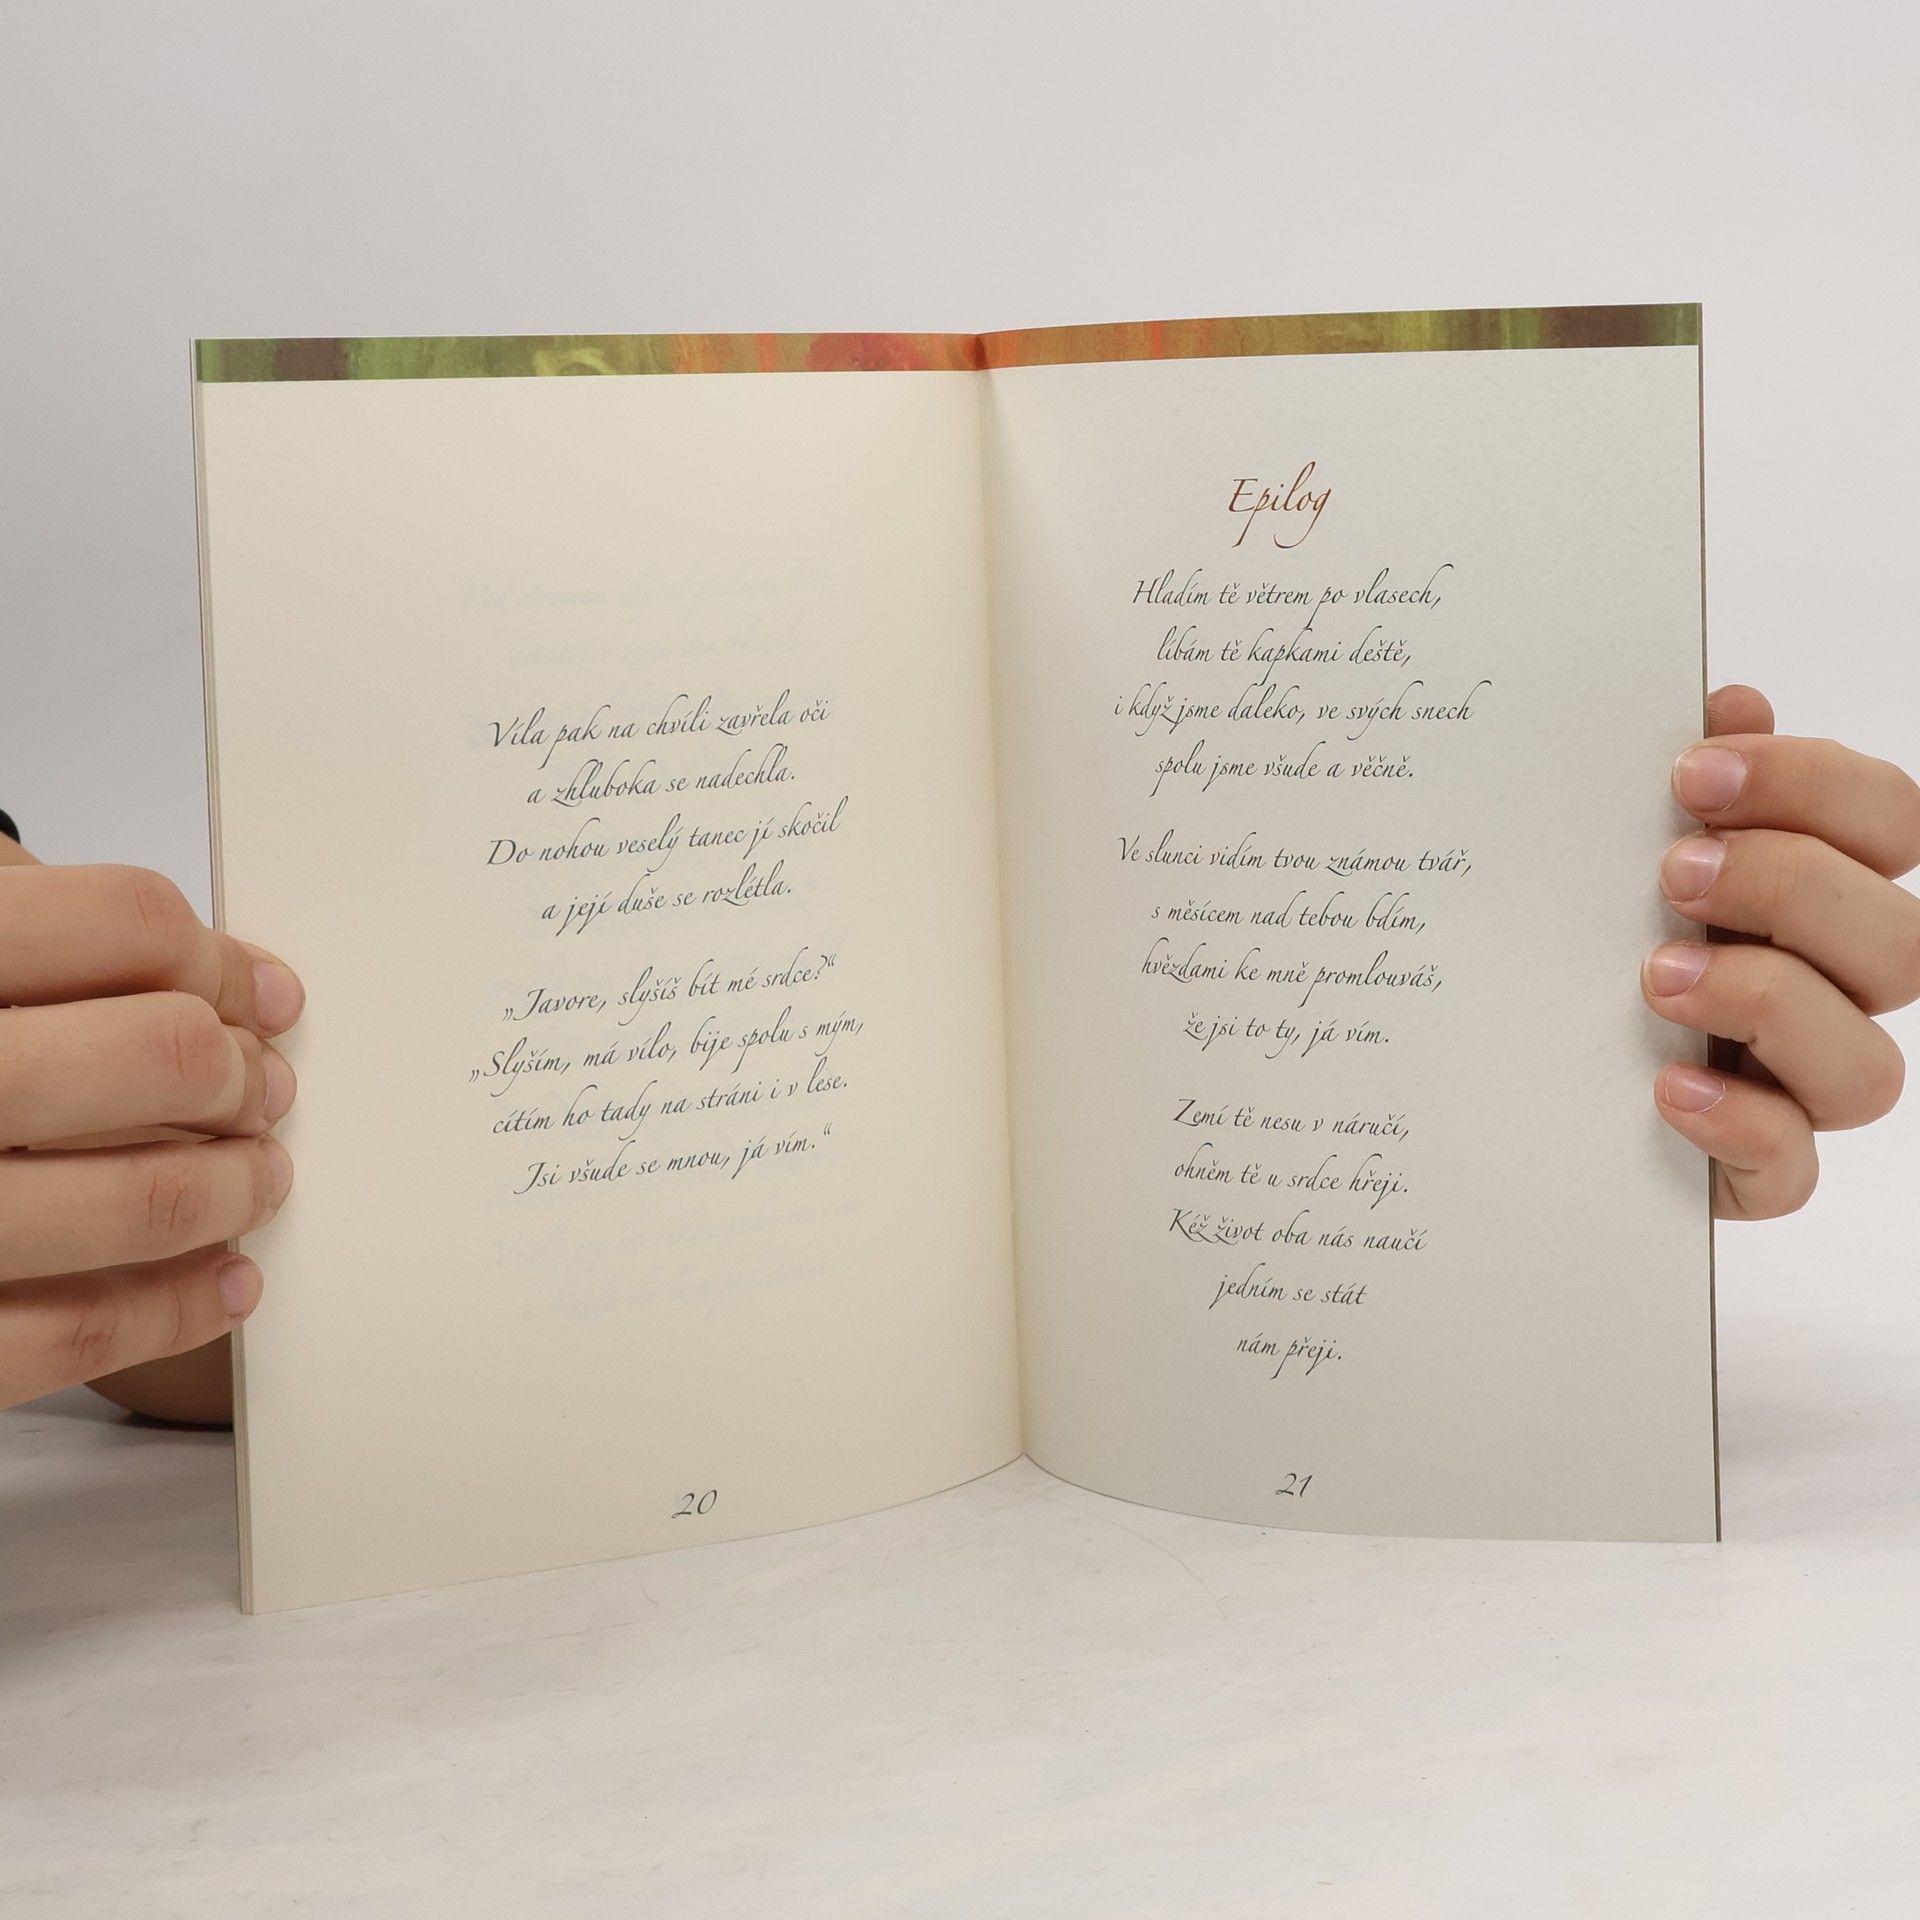 Víla pak na chvíli zavřela oči
a zhluboka se nadechla.
Do nohou veselý tanec jí skočil
a její duše se rozlétla.
„Javore, slyšíš bít mé srdce?“
„Slyším, má vílo, bije spolu s mým,
cítím ho tady na stráni i v lese.
Jsi všude se mnou, já vím.“
20
Epilog
Hladím tě větrem po vlasech,
líbám tě kapkami deště,
i když jsme daleko, ve svých snech
spolu jsme všude a věčně.
Ve slunci vidím tvou známou tvář,
s měsícem nad tebou bdím,
hvězdami ke mně promlouváš,
že jsi to ty, já vím.
Zemí tě nesu v náručí,
ohněm tě u srdce hřeji.
Kéž život oba nás naučí
jedním se stát
nám přeji.
21